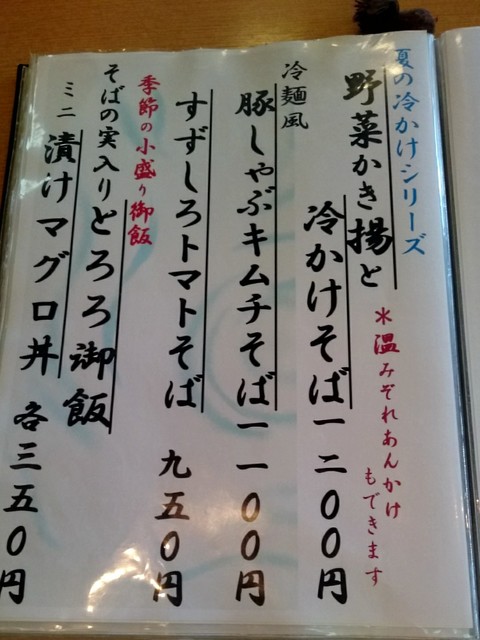 夏の冷かけシリーズ
野菜かき揚と
冷かけそば 一二〇〇円
＊温みぞれあんかけ
もできます
冷麺風
豚しゃぶキムチそば 一一〇〇円
すずしろトマトそば 九五〇円
季節の小盛り御飯
そばの実入りとろろ御飯
ミニ漬けマグロ丼 各三五〇円